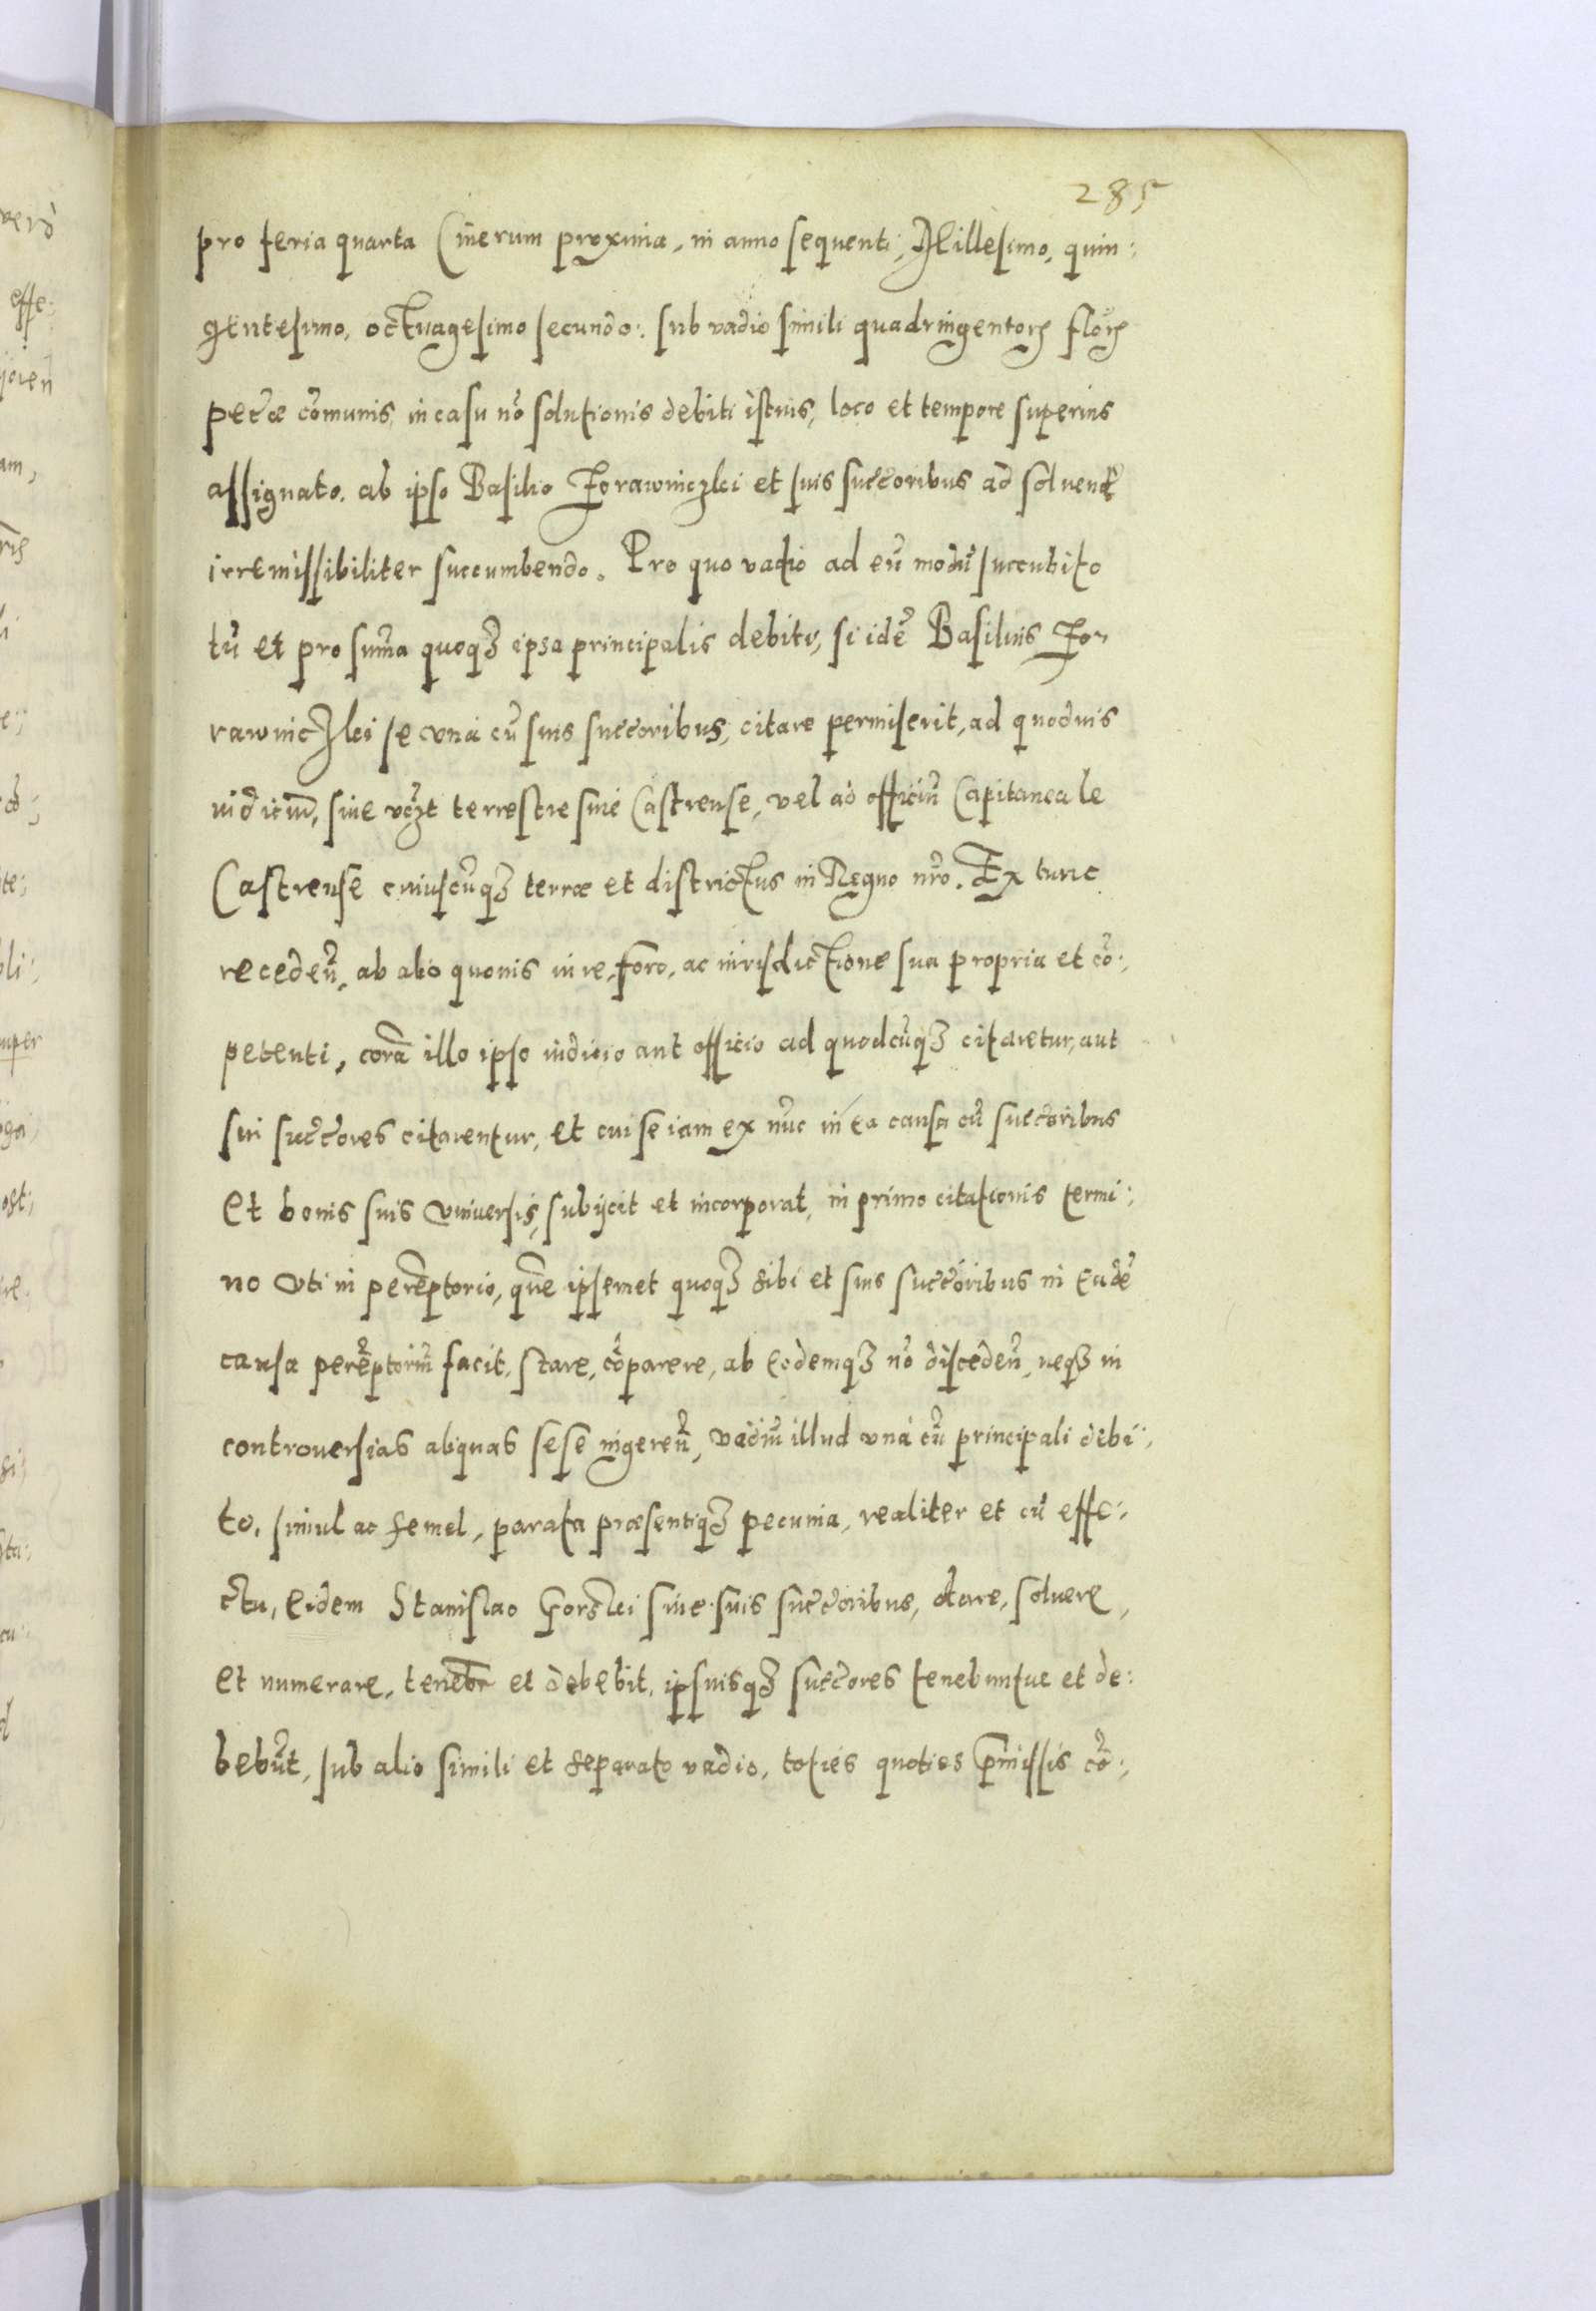 285
pro feria quarta Cinerum proxima, in anno sequenti, Millesimo, quin:
gentesimo, octuagesimo secundo: sub vadio simili quadringentorꝫ florꝫ
pec̃æ cõmunis, in casu nõ solutionis debiti istius, loco et tempore superius
assignato, ab ipso Basilio Zorawniczki et suis succ̃oribus ad soluend̃
irremissibiliter succumbendo. Pro quo vadio ad eũ modũ succubito
tũ et pro sum̃a quoqꝫ ipsa principalis debiti, si idẽ Basilius Zo-
rawniczki se vna cũ suis succ̃oribus, citare permiserit, ad quoduis
iudiciũ, siue vtꝫt terrestre siue Castrense, vel ad officiũ Capitaneale
Castrense cuiuscũqꝫ terræ et districtus in Regno nr̃o. Ex tunc
recedeñ, ab alio quouis iure, foro, ac iurisdictione sua propria et cõ:
petenti, corã illo ipso iudicio aut officio ad quodcũqꝫ citaretur, aut
sui succ̃ores citarentur, et cui se iam ex nũc in ea causa cũ succ̃oribus
et bonis suis vniuersis, subijcit et incorporat, in primo citationis termi:
no vti in perẽptorio, quẽ ipsemet quoqꝫ sibi et suis succ̃oribus in eadẽ
causa perẽptoriũ facit, stare, cõparere, ab eodemqꝫ nõ discedeñ, neqꝫ in
controuersias aliquas sese ingereñ, vadiũ illud vná cũ principali debi:
to, simul ac semel, parata præsentiqꝫ pecunia, realiter et cũ effe:
ctu, eidem Stanislao Gorski siue suis succ̃oribus, dare, soluere,
et numerare, teneb̃r et debebit, ipsiusqꝫ succ̃ores tenebuntur et de:
bebũt, sub alio simili et separato vadio, toties quoties p̃missis cõ: